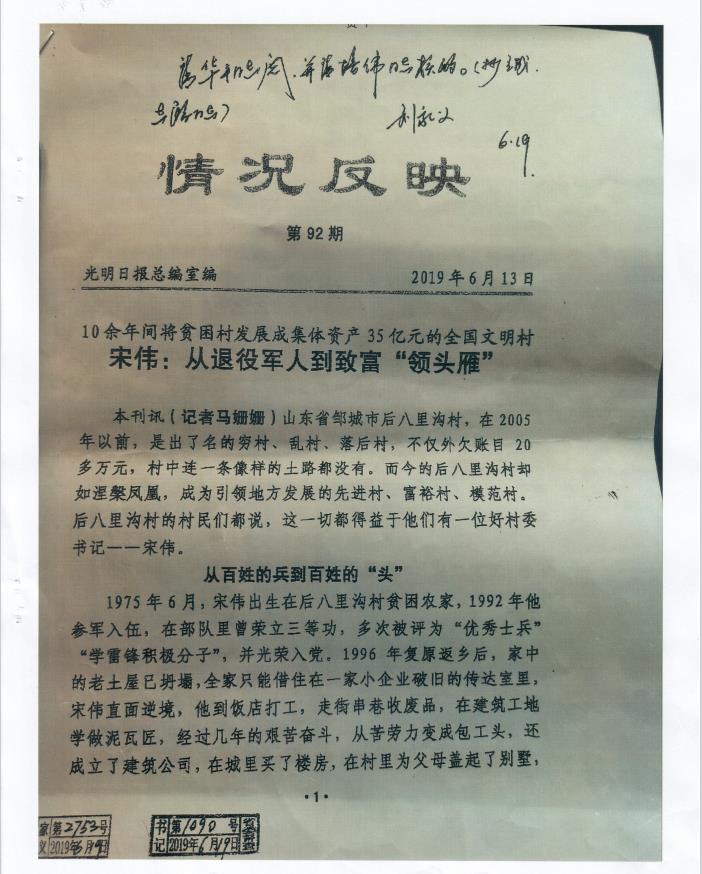 刘家义
6.19
情况反映
第92期
光明日报总编室编 2019年6月13日
10余年间将贫困村发展成集体资产35亿元的全国文明村
宋伟：从退役军人到致富“领头雁”
本刊讯（记者马姗姗）山东省邹城市后八里沟村，在2005
年以前，是出了名的穷村、乱村、落后村，不仅外欠账目20
多万元，村中连一条像样的土路都没有。而今的后八里沟村却
如涅槃凤凰，成为引领地方发展的先进村、富裕村、模范村。
后八里沟村的村民们都说，这一切都得益于他们有一位好村委
书记——宋伟。
从百姓的兵到百姓的“头”
1975年6月，宋伟出生在后八里沟村贫困农家，1992年他
参军入伍，在部队里曾荣立三等功，多次被评为“优秀士兵”
“学雷锋积极分子”，并光荣入党。1996年复原返乡后，家中
的老土屋已坍塌，全家只能借住在一家小企业破旧的传达室里，
宋伟直面逆境，他到饭店打工，走街串巷收废品，在建筑工地
学做泥瓦匠，经过几年的艰苦奋斗，从苦劳力变成包工头，还
成立了建筑公司，在城里买了楼房，在村里为父母盖起了别墅，
·1·
家 第2753号
义 2019年6月19日
书 第1090号
记 2019年6月19日